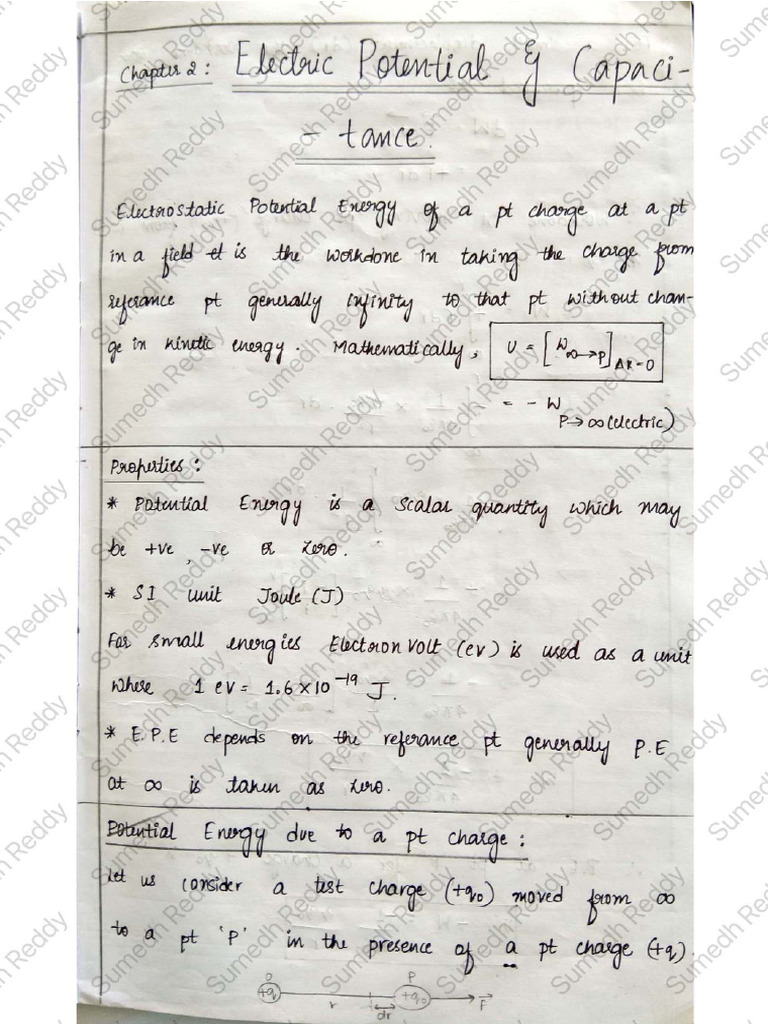 Chapter 2: Electric Potential & Capaci-
- tance.
Electrostatic Potential Energy of a pt charge at a pt
in a field it is the workdone in taking the charge from
referance pt generally infinity to that pt without chan-
ge in kinetic energy. Mathematically, U = [W∞→P]ΔK=0
= - W P→∞(electric)
Properties:
* Potential Energy is a scalar quantity which may
be +ve, -ve or zero.
* SI unit Joule (J)
For small energies Electron Volt (ev) is used as a unit
where 1 ev = 1.6×10⁻¹⁹ J.
* E.P.E depends on the referance pt generally P.E
at ∞ is taken as zero.
Potential Energy due to a pt charge:
Let us consider a test charge (+q₀) moved from ∞
to a pt 'P' in the presence of a pt charge (+q).
O P
+q +q₀ F
r dr
Sumedh Reddy